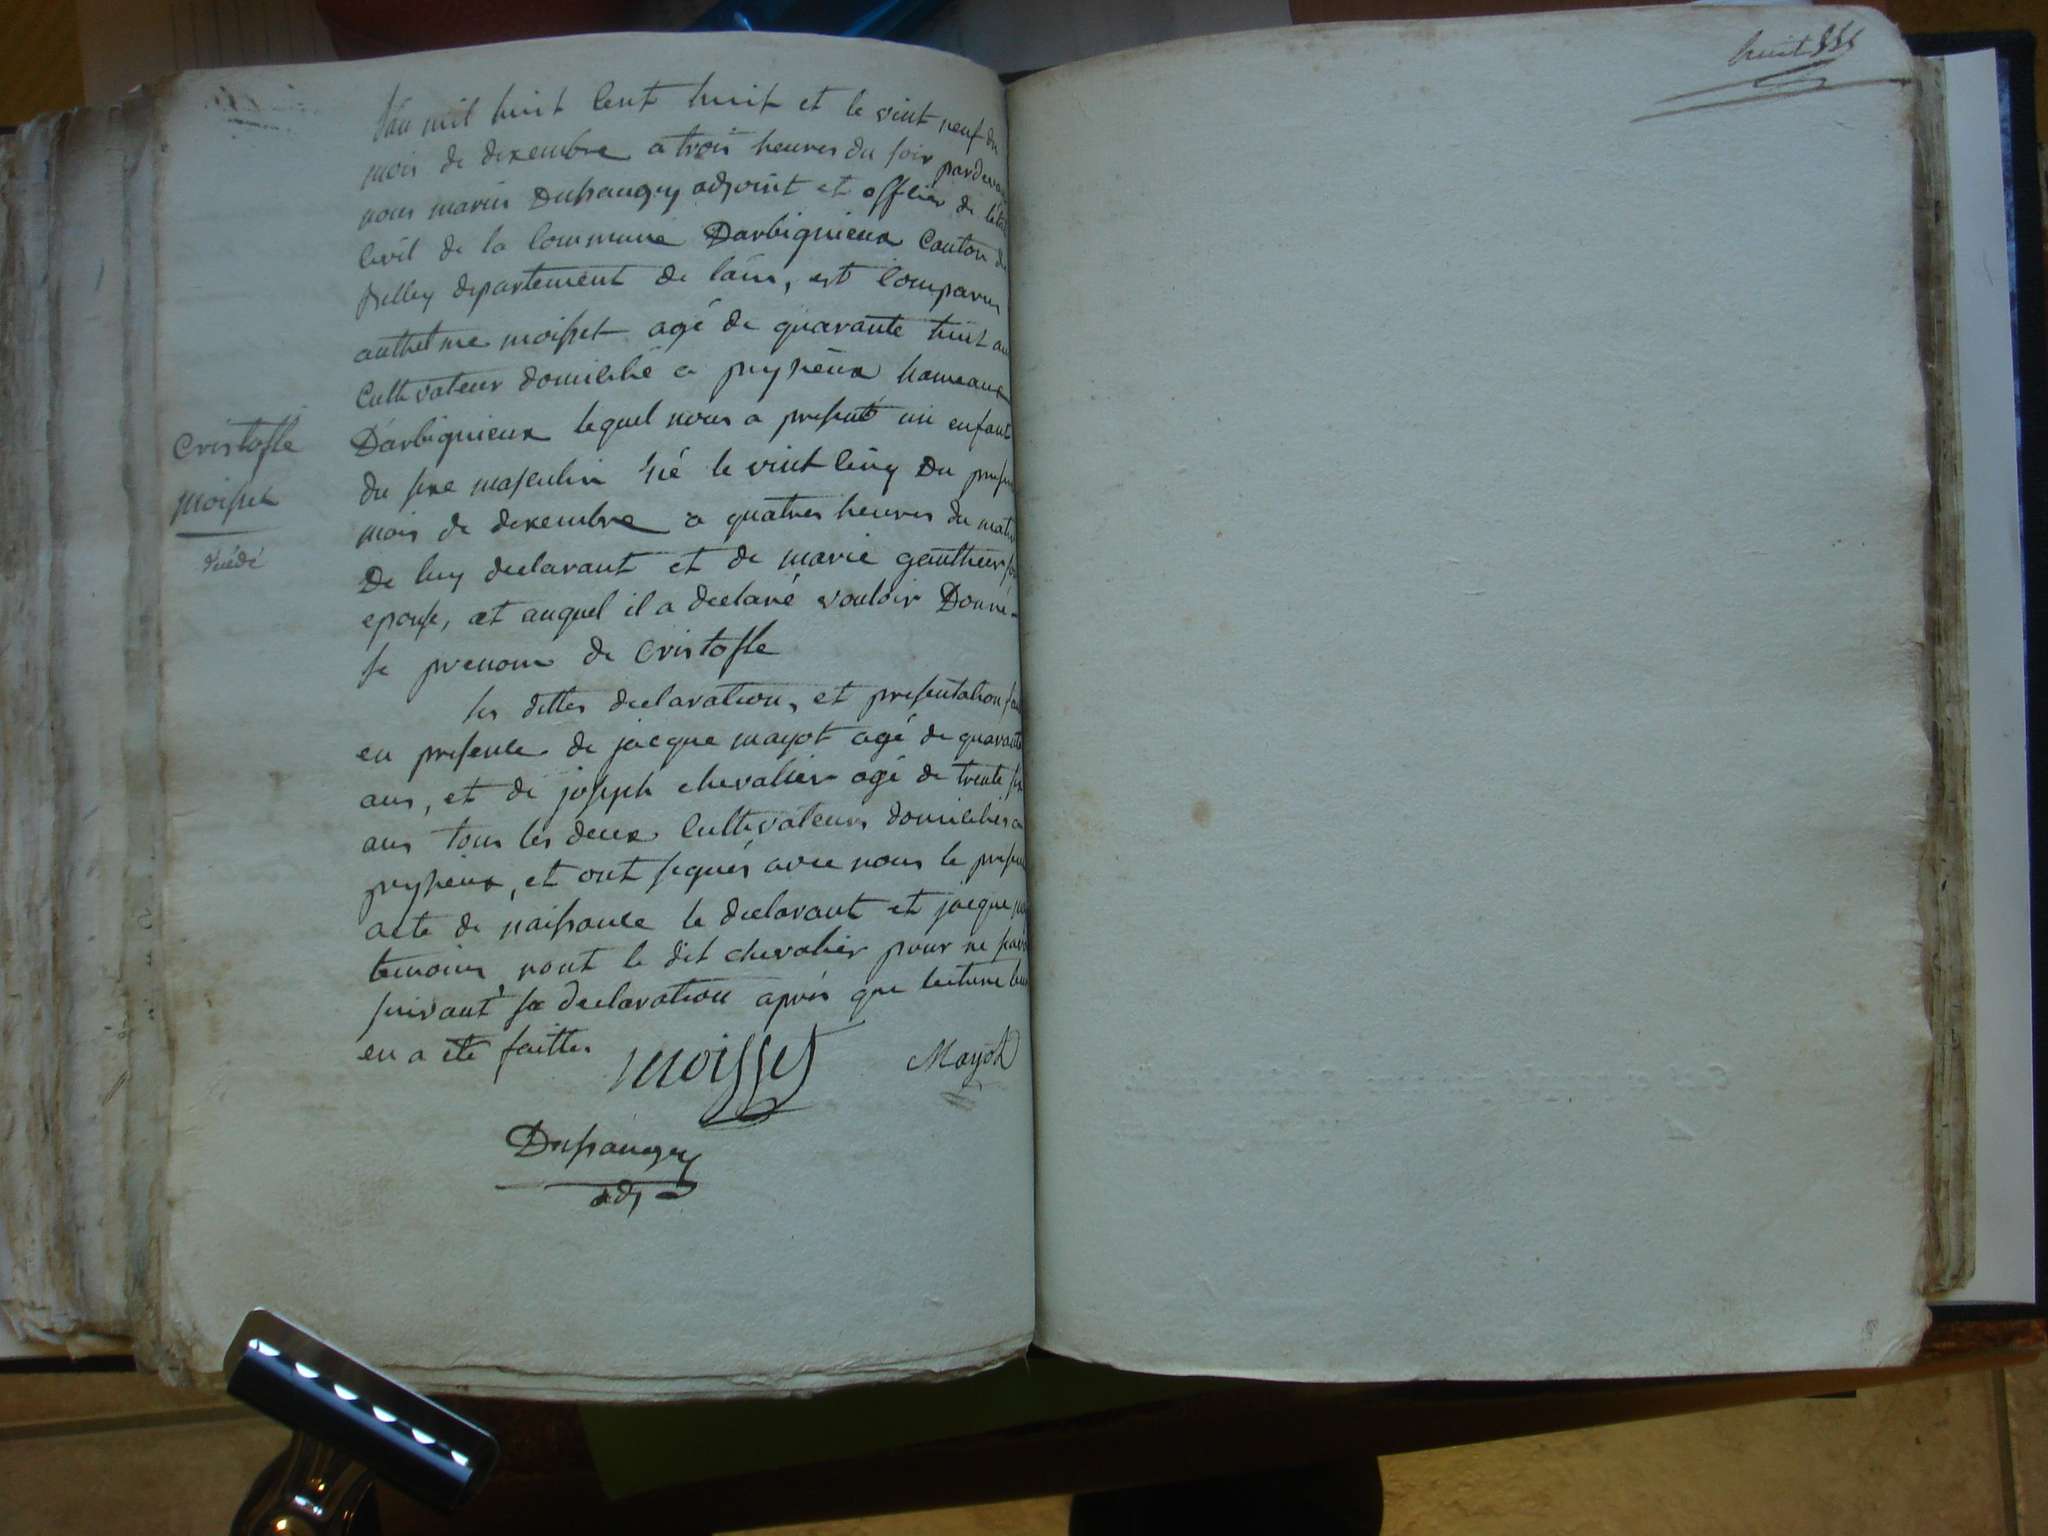 huit
L'an mil huit cent huit et le vint neuf du
mois de dexembre a trois heures du soir pardevant
nous marin Dupaugey adjoint et officier de l'état
civil de la commune Darbignieux Canton de
Belley departement de lain, est comparu
anthelme moisset agé de quarante huit an
cultivateur domicilié a peyzieux hameaux
Darbignieux lequel nous a presenté un enfant
Cristofle
du sexe masculin né le vint cinq du present
moisset
mois de dexembre a quatres heures du matin
décédé
De luy declarant et de marie gauthier son
epouse, et auquel il a declaré vouloir Donné
le prenom de Cristofle
les dittes declaration, et presentation
en presence de jacque mayot agé de quarante
ans, et de joseph chevalier agé de trente six
ans tous les deux cultivateurs domiciliés a
peyzieux, et ont signés avec nous le present
acte de naissance le declarant et jacque
temoins nont le dit chevalier pour ne savoir
suivant sa declaration après que lecture leur
en a été faitte.
moisset Mayot
Dupaugey
adj